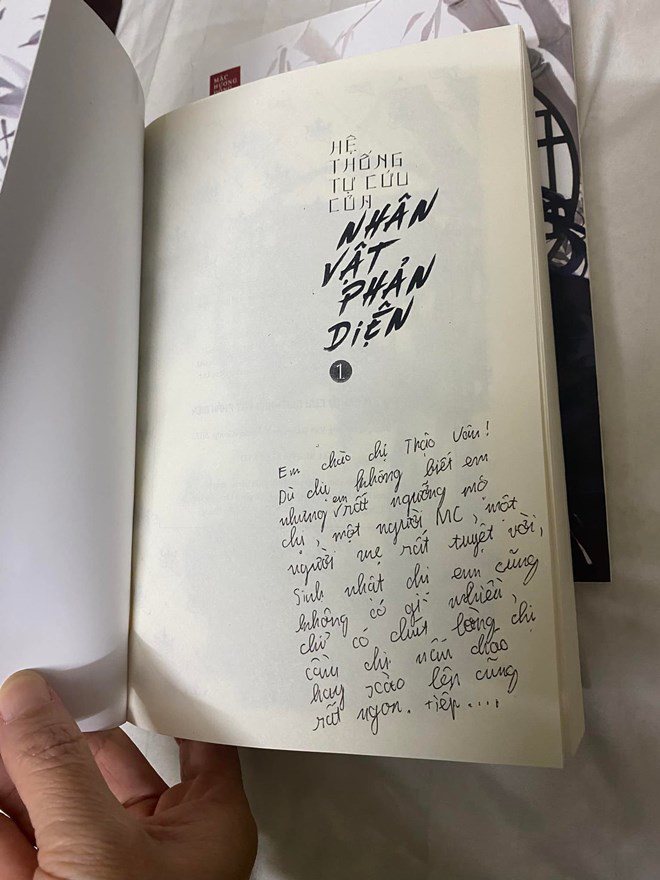 MẶC
HƯƠNG
HỆ
THỐNG
TỰ CỨU
CỦA
NHÂN
VẬT
PHẢN
DIỆN
1
Em chào chị Thảo Vân!
Dù chị không biết em
nhưng em rất ngưỡng mộ
chị, một người MC, một
người mẹ rất tuyệt vời,
Sinh nhật chị em cũng
không có gì nhiều,
chỉ có chút lòng chị
cầu chị nấu cháo
hay xào lên cũng
rất ngon. tiếp....,